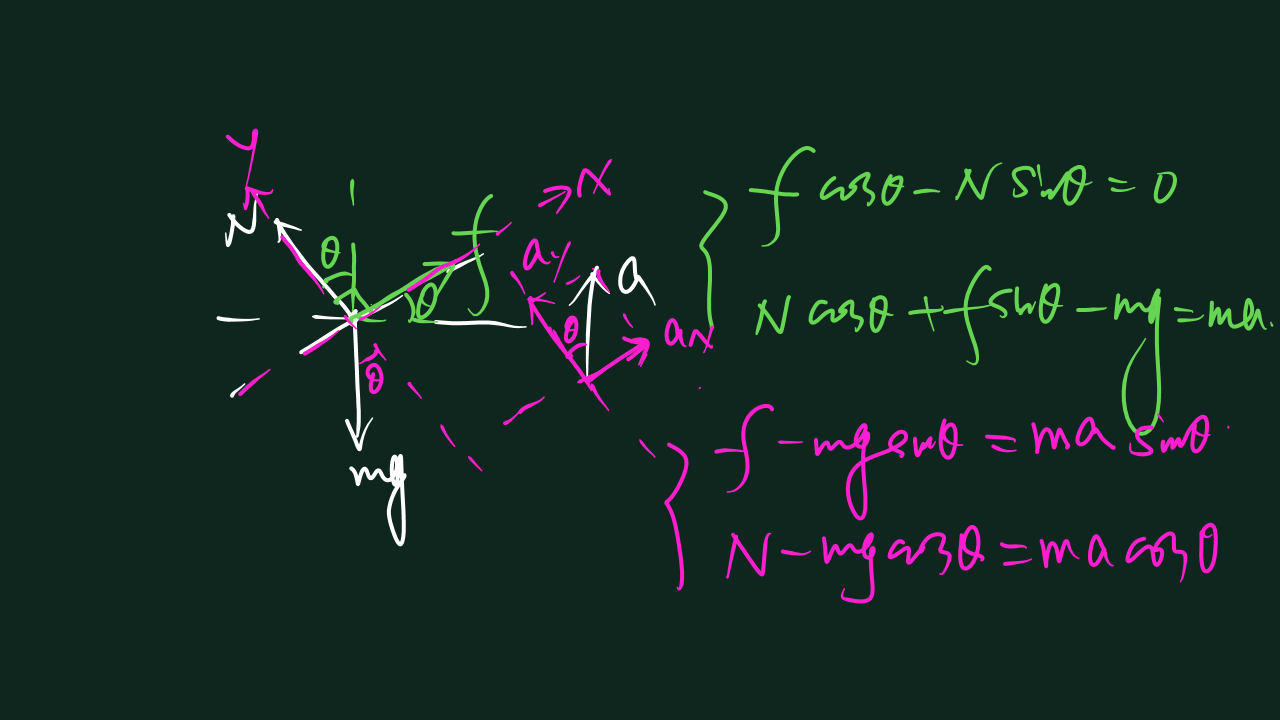 y
N
θ
f
x
θ
θ
mg
ay
a
θ
ax
f cosθ - N sinθ = 0
N cosθ + f sinθ - mg = ma.
f - mg sinθ = ma sinθ
N - mg cosθ = ma cosθ